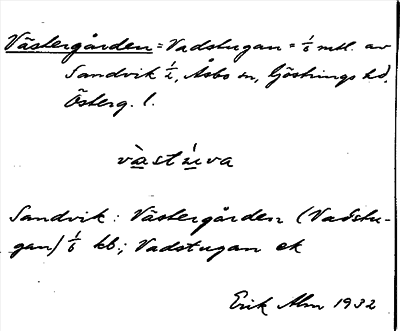 Västergården = Vadstugan = 1/6 mtl. av
Sandvik 1/2, Åsbo sn, Göstrings hd,
Österg. l.
vàst
Sandvik: Västergården (Vadstu-
gan) 1/6 kb.; Vadstugan ek
Erik Alm 1932